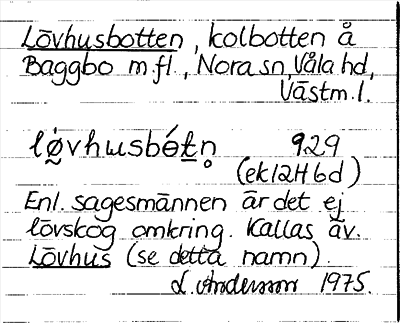 Lövhusbotten, kolbotten å
Baggbo m.fl., Nora sn, Våla hd,
Västm.l.
lǿ̯vhusbót̠n̥ 929
(ek12H6d)
Enl. sagesmännen är det ej
lövskog omkring. Kallas äv.
Lövhus (se detta namn).
L. Andersson 1975.